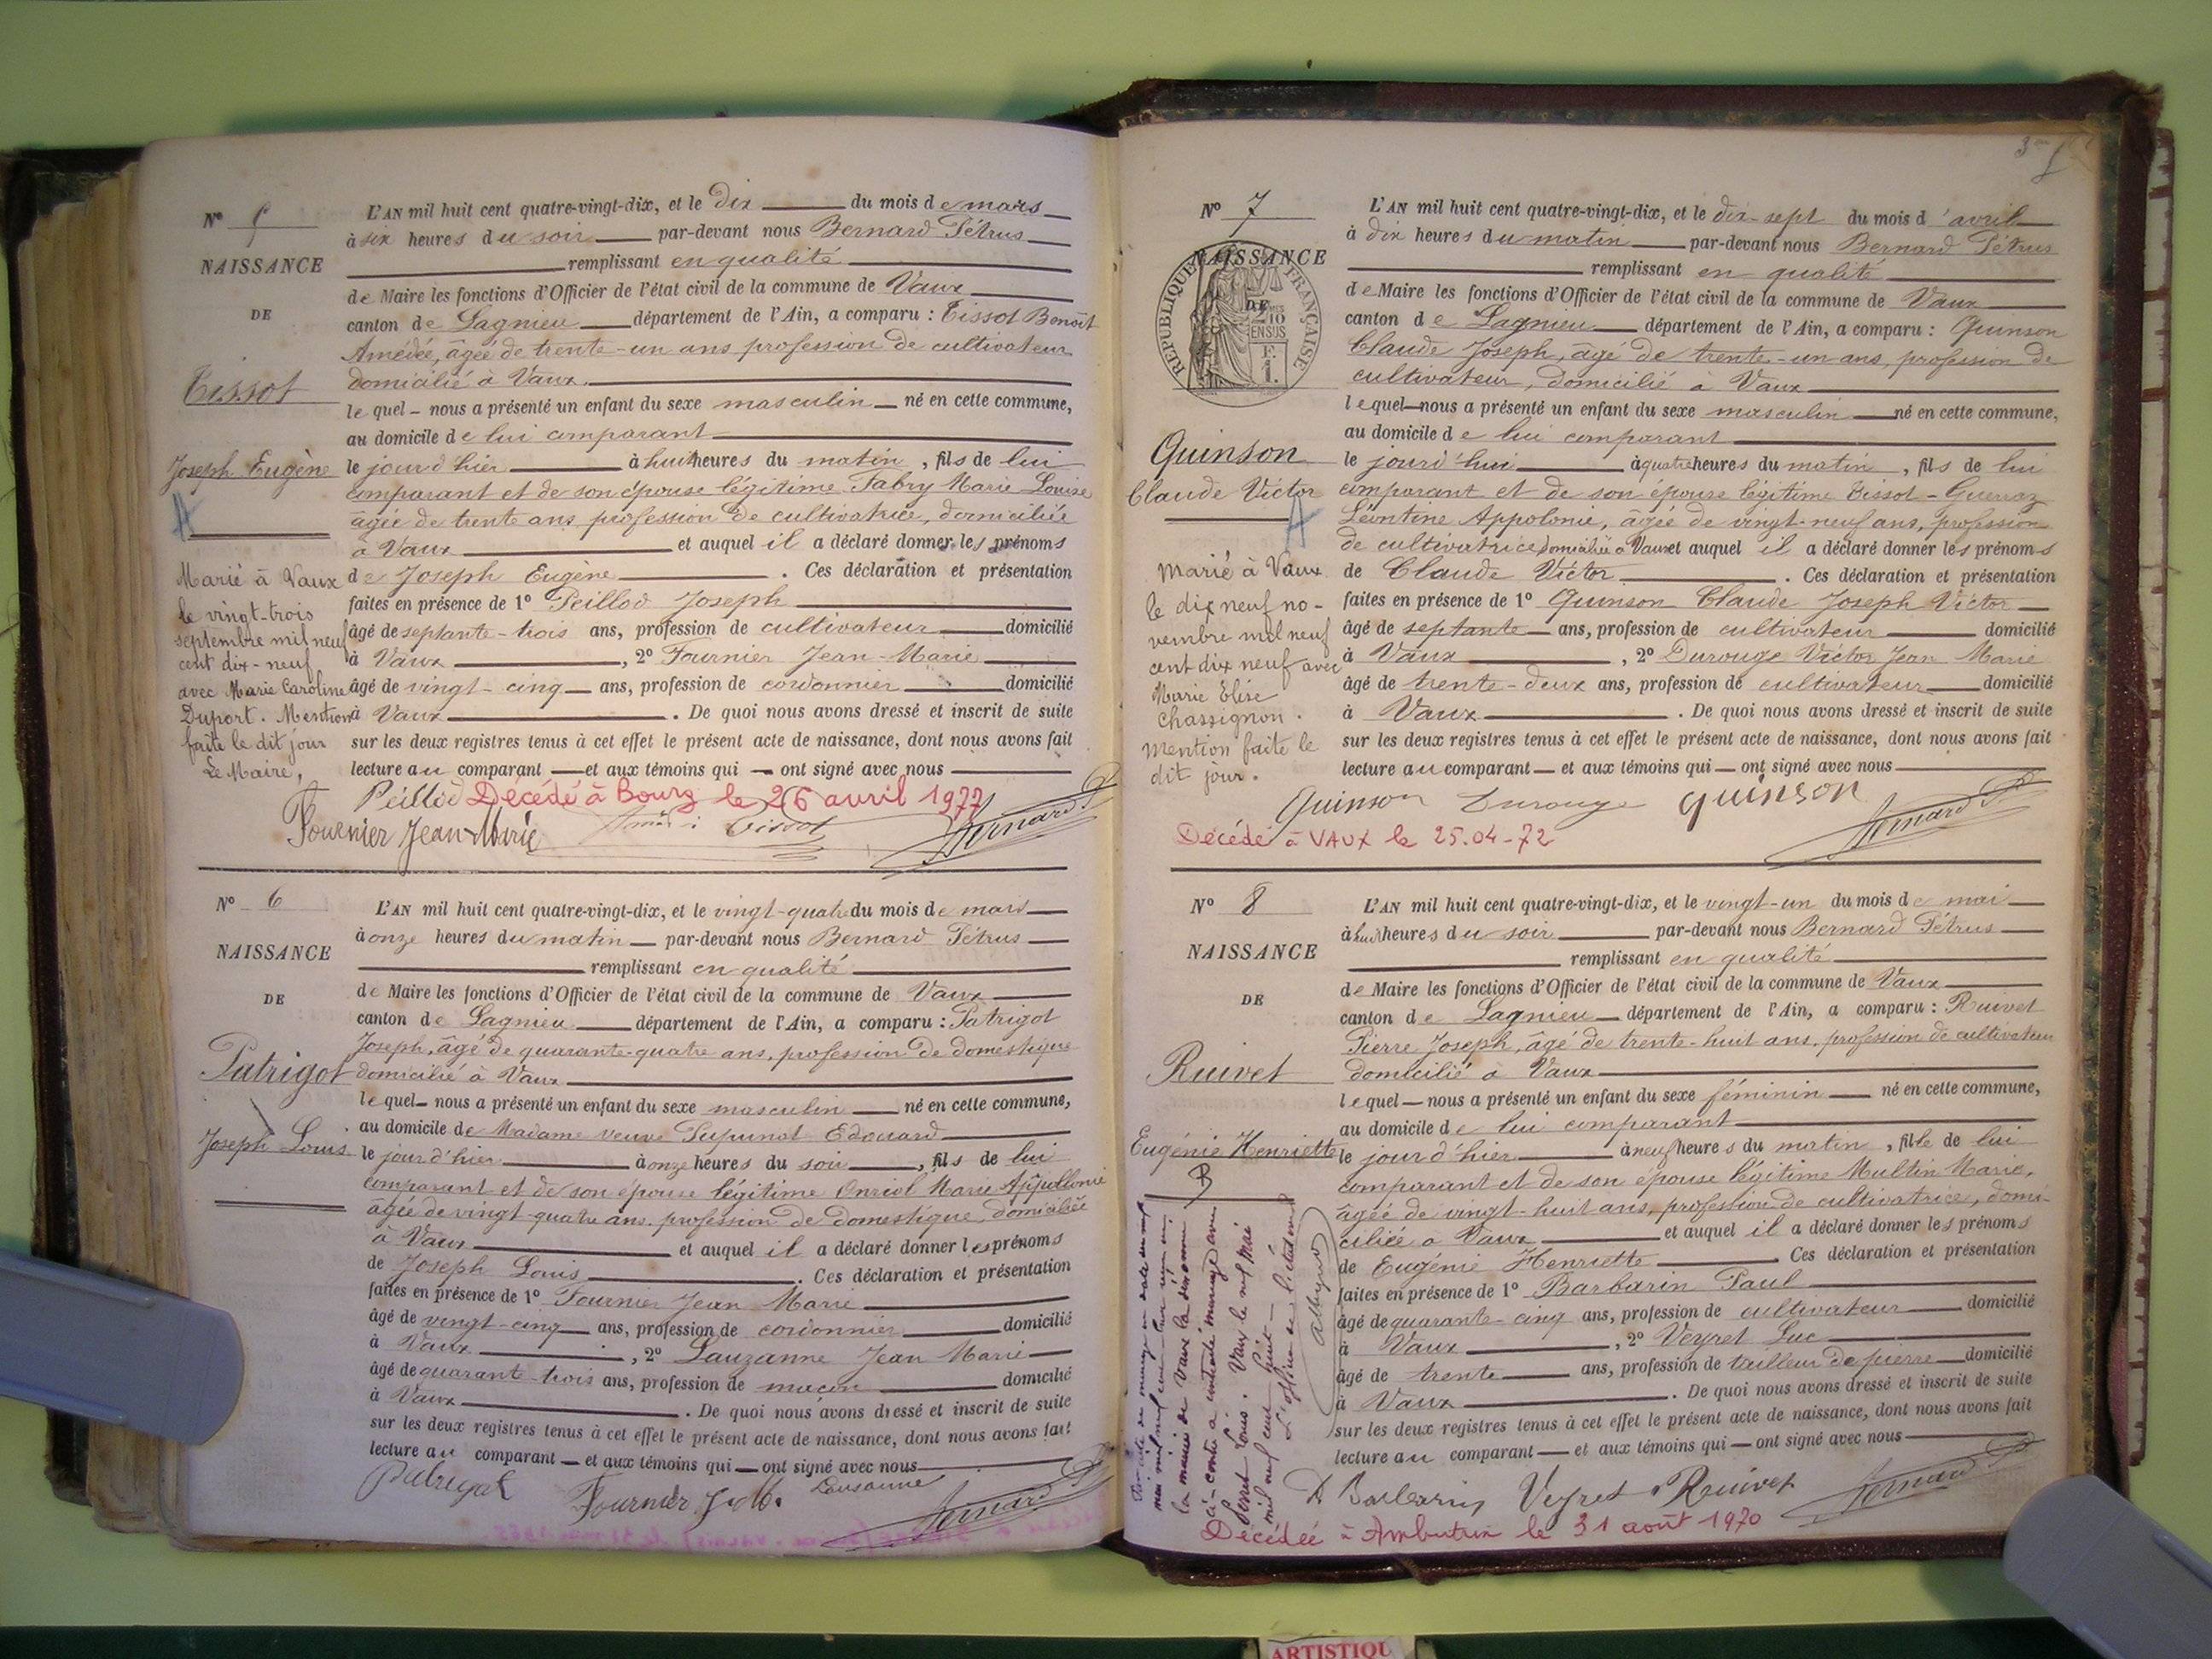 N° 5
NAISSANCE
DE
Tissot
Joseph Eugène
A
Marié à Vaux
le vingt-trois
septembre mil neuf
cent dix-neuf
avec Marie Caroline
Duport. Mention
faite le dit jour
Le Maire,
L'AN mil huit cent quatre-vingt-dix, et le dix du mois de mars
à six heures du soir par-devant nous Bernard Pétrus
remplissant en qualité
de Maire les fonctions d'Officier de l'état civil de la commune de Vaux
canton de Lagnieu département de l'Ain, a comparu : Tissot Benoît
Amédée, âgée de trente-un ans profession de cultivateur
domicilié à Vaux.
lequel nous a présenté un enfant du sexe masculin né en cette commune,
au domicile de lui comparant
le jour d'hier à huit heures du matin, fils de lui
comparant et de son épouse légitime Fabry Marie Louise
âgée de trente ans profession de cultivatrice, domiciliée
à Vaux et auquel il a déclaré donner les prénoms
de Joseph Eugène. Ces déclaration et présentation
faites en présence de 1° Peillod Joseph
âgé de septante-trois ans, profession de cultivateur domicilié
à Vaux, 2° Fournier Jean-Marie
âgé de vingt-cinq ans, profession de cordonnier domicilié
à Vaux. De quoi nous avons dressé et inscrit de suite
sur les deux registres tenus à cet effet le présent acte de naissance, dont nous avons fait
lecture au comparant et aux témoins qui ont signé avec nous
Peillod Décédé à Bourg le 26 avril 1977
Fournier Jean-Marie Tissot Bernard P
N° 6
NAISSANCE
DE
Patrigot
Joseph Louis
L'AN mil huit cent quatre-vingt-dix, et le vingt-quatre du mois de mars
à onze heures du matin par-devant nous Bernard Pétrus
remplissant en qualité
de Maire les fonctions d'Officier de l'état civil de la commune de Vaux
canton de Lagnieu département de l'Ain, a comparu : Patrigot
Joseph, âgé de quarante-quatre ans, profession de domestique
domicilié à Vaux
lequel nous a présenté un enfant du sexe masculin né en cette commune,
au domicile de Madame veuve Edouard
le jour d'hier à onze heures du soir, fils de lui
comparant et de son épouse légitime Marie Appollonie
âgée de vingt-quatre ans, profession de domestique domiciliée
à Vaux et auquel il a déclaré donner les prénoms
de Joseph Louis. Ces déclaration et présentation
faites en présence de 1° Fournier Jean Marie
âgé de vingt-cinq ans, profession de cordonnier domicilié
à Vaux, 2° Lauzanne Jean Marie
âgé de quarante-trois ans, profession de maçon domicilié
à Vaux. De quoi nous avons dressé et inscrit de suite
sur les deux registres tenus à cet effet le présent acte de naissance, dont nous avons fait
lecture au comparant et aux témoins qui ont signé avec nous
Patrigot Fournier J. M. Lausanne Bernard P
N° 7
NAISSANCE
DE
RÉPUBLIQUE FRANÇAISE
2/10
EN SUS
Quinson
Claude Victor
A
Marié à Vaux
le dix neuf no-
vembre mil neuf
cent dix neuf avec
Marie Elise
Chassignon.
Mention faite le
dit jour.
L'AN mil huit cent quatre-vingt-dix, et le dix-sept du mois d'avril
à dix heures du matin par-devant nous Bernard Pétrus
remplissant en qualité
de Maire les fonctions d'Officier de l'état civil de la commune de Vaux
canton de Lagnieu département de l'Ain, a comparu : Quinson
Claude Joseph, âgé de trente-un ans, profession de
cultivateur, domicilié à Vaux
lequel nous a présenté un enfant du sexe masculin né en cette commune,
au domicile de lui comparant
le jourd'hui à quatre heures du matin, fils de lui
comparant et de son épouse légitime Tissot-Guerraz
Léontine Appolonie, âgée de vingt-neuf ans, profession
de cultivatrice domiciliée à Vaux et auquel il a déclaré donner les prénoms
de Claude Victor. Ces déclaration et présentation
faites en présence de 1° Quinson Claude Joseph Victor
âgé de septante ans, profession de cultivateur domicilié
à Vaux, 2° Durouge Victor Jean Marie
âgé de trente-deux ans, profession de cultivateur domicilié
à Vaux. De quoi nous avons dressé et inscrit de suite
sur les deux registres tenus à cet effet le présent acte de naissance, dont nous avons fait
lecture au comparant et aux témoins qui ont signé avec nous
Quinson Durouge quinson Bernard P
Décédé à VAUX le 25.04-72
N° 8
NAISSANCE
DE
Ruivet
Eugénie Henriette
B
L'AN mil huit cent quatre-vingt-dix, et le vingt-un du mois de mai
à huit heures du soir par-devant nous Bernard Pétrus
remplissant en qualité
de Maire les fonctions d'Officier de l'état civil de la commune de Vaux
canton de Lagnieu département de l'Ain, a comparu : Ruivet
Pierre Joseph, âgé de trente-huit ans, profession de cultivateur
domicilié à Vaux
lequel nous a présenté un enfant du sexe féminin né en cette commune,
au domicile de lui comparant
le jour d'hier à neuf heures du matin, fille de lui
comparant et de son épouse légitime Multin Marie,
âgée de vingt-huit ans, profession de cultivatrice, domi-
ciliée à Vaux et auquel il a déclaré donner les prénoms
de Eugénie Henriette Ces déclaration et présentation
faites en présence de 1° Barbarin Paul
âgé de quarante-cinq ans, profession de cultivateur domicilié
à Vaux, 2° Veyret Luc
âgé de trente ans, profession de tailleur de pierre domicilié
à Vaux. De quoi nous avons dressé et inscrit de suite
sur les deux registres tenus à cet effet le présent acte de naissance, dont nous avons fait
lecture au comparant et aux témoins qui ont signé avec nous
la mairie de Vaux la dénommée
ci-contre a contracté mariage avec
Perret Louis. Vaux le neuf mai
mil neuf cent huit
L'officier de l'état civil
Barbarin Veyret Ruivet Bernard P
Décédée à Ambutrix le 31 août 1970
ARTISTIQU